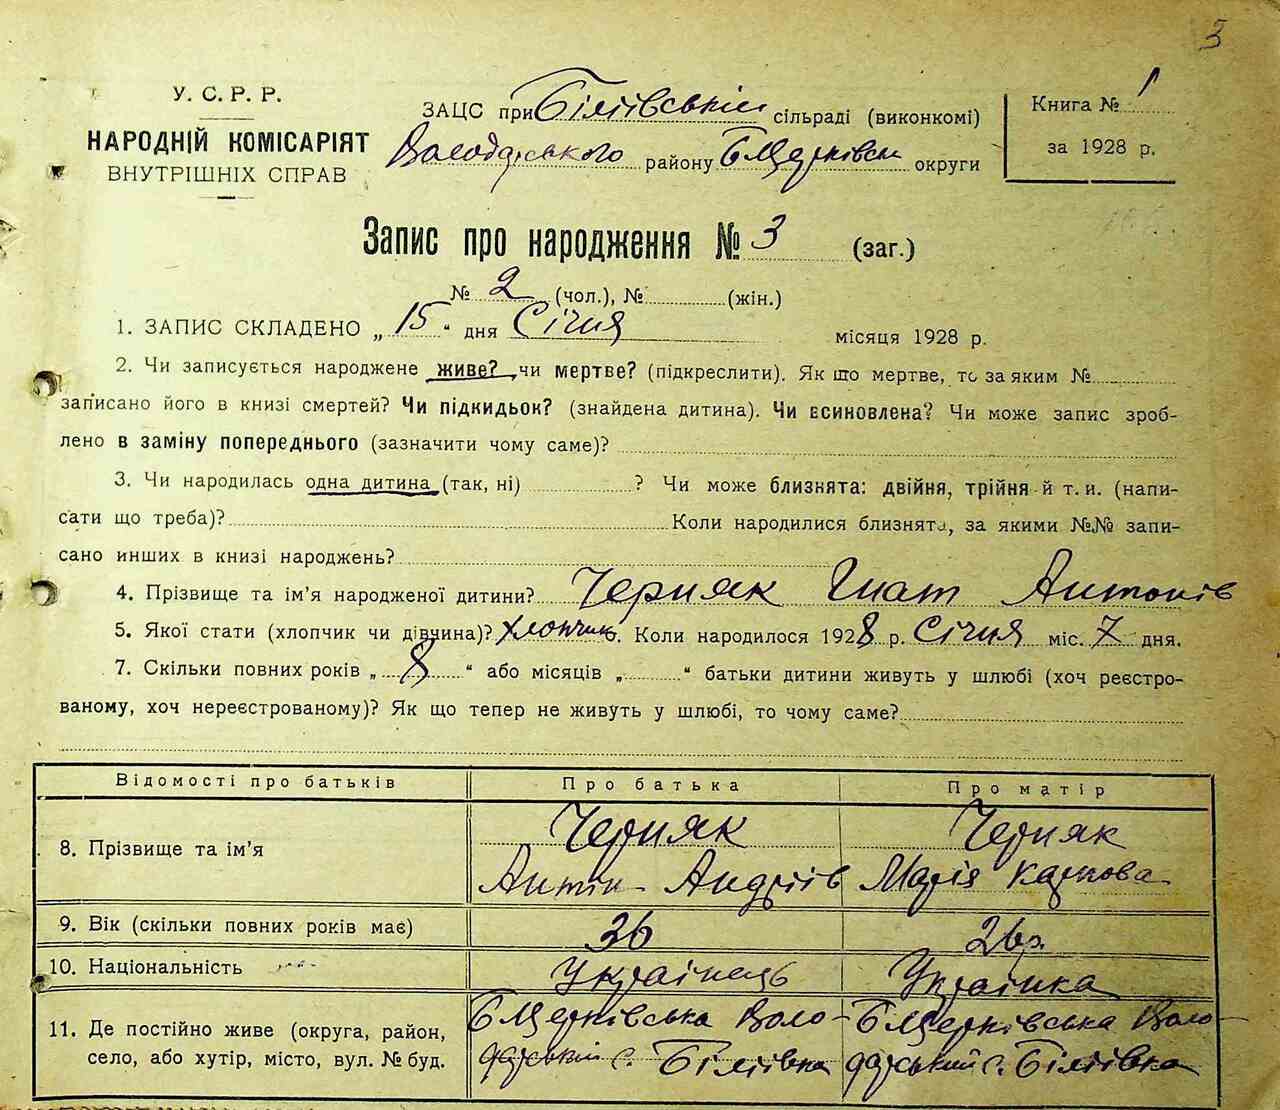 3
У. С. Р. Р.
НАРОДНІЙ КОМІСАРІЯТ
ВНУТРІШНІХ СПРАВ
ЗАЦС при Біліївській сільраді (виконкомі)
Володарського району БЦерківськ округи
Книга № 1
за 1928 р.
Запис про народження № 3 (заг.)
№ 2 (чол.), № (жін.)
1. ЗАПИС СКЛАДЕНО „ 15 “ дня Січня місяця 1928 р.
2. Чи записується народжене живе? чи мертве? (підкреслити). Як що мертве, то за яким №
записано його в книзі смертей? Чи підкидьок? (знайдена дитина). Чи всиновлена? Чи може запис зроб-
лено в заміну попереднього (зазначити чому саме)?
3. Чи народилась одна дитина (так, ні) ? Чи може близнята: двійня, трійня й т. и. (напи-
сати що треба)? Коли народилися близнята, за якими №№ запи-
сано инших в книзі народжень?
4. Прізвище та ім'я народженої дитини? Черняк Гнат Антонів
5. Якої стати (хлопчик чи дівчина)? хлопчик. Коли народилося 1928 р. Січня міс. 7 дня.
7. Скільки повних років „ 8 “ або місяців „ “ батьки дитини живуть у шлюбі (хоч реєстро-
ваному, хоч нереєстрованому)? Як що тепер не живуть у шлюбі, то чому саме?
Відомості про батьків Про батька Про матір
8. Прізвище та ім'я Черняк Черняк
Антін Андріїв Марія Карпова
9. Вік (скільки повних років має) 36 26р.
10. Національність Українець Українка
11. Де постійно живе (округа, район, БЦерківська Воло- БЦерківська Воло-
село, або хутір, місто, вул. № буд. дарський с. Біліївка дарський с. Біліївка